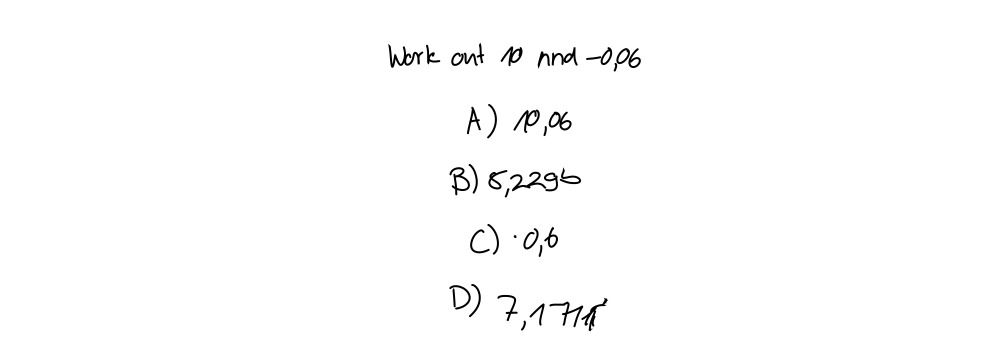 Work out 10 nnd -0,06
A) 10,06
B) 8,2296
C) ·0,6
D)